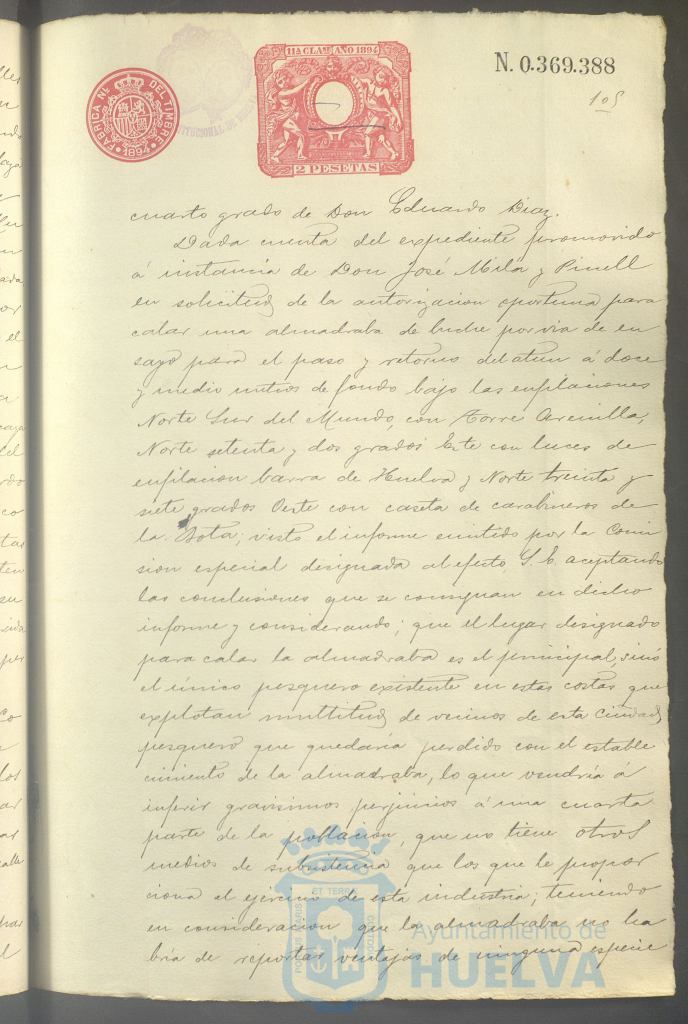 FABRICA Nal DEL TIMBRE
1894
11ª CLASE AÑO 1894
2 PESETAS
N. 0.369.388
105
cuarto grado de Don Eduardo Diaz.
Dada cuenta del expediente promovido
á instancia de Don José Milá y Pinell
en solicitud de la autorizacion oportuna para
calar una almadraba de buche por via de en
sayo para el paso y retorno del atun á doce
y medio metros de fondo bajo las enfilaciones
Norte Sur del Mundo, con Torre Arenilla,
Norte setenta y dos grados Este con luces de
enfilacion barra de Huelva y Norte treinta y
siete grados Oeste con caseta de carabineros de
la Bota; visto el informe emitido por la Comi
sion especial designada al efecto, S. E. aceptando
las conclusiones que se consignan en dicho
informe y considerando; que el lugar designado
para calar la almadraba es el principal, sinó
el único pesquero existente en estas costas que
explotan multitud de vecinos de esta Ciudad,
pesquero que quedaria perdido con el estable
cimiento de la almadraba, lo que vendria á
inferir gravisimos perjuicios á una cuarta
parte de la poblacion, que no tiene otros
medios de subsistencia que los que le propor
ciona el ejercicio de esta industria; teniendo
en consideracion que la almadraba no ha
bria de reportar ventajas de ninguna especie
PORTUS MARIS ET TERRAE CUSTODIA
Ayuntamiento de
HUELVA